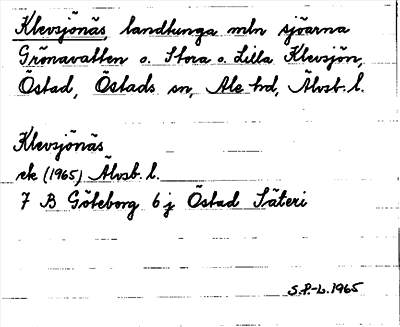 Klevsjönäs landtunga mln sjöarna
Grönavatten o. Stora o. Lilla Klevsjön,
Östad, Östads sn, Ale hd, Älvsb. l.
Klevsjönäs
ek (1965) Älvsb. l.
7 B Göteborg 6 j Östad Säteri
S.P.-L. 1965